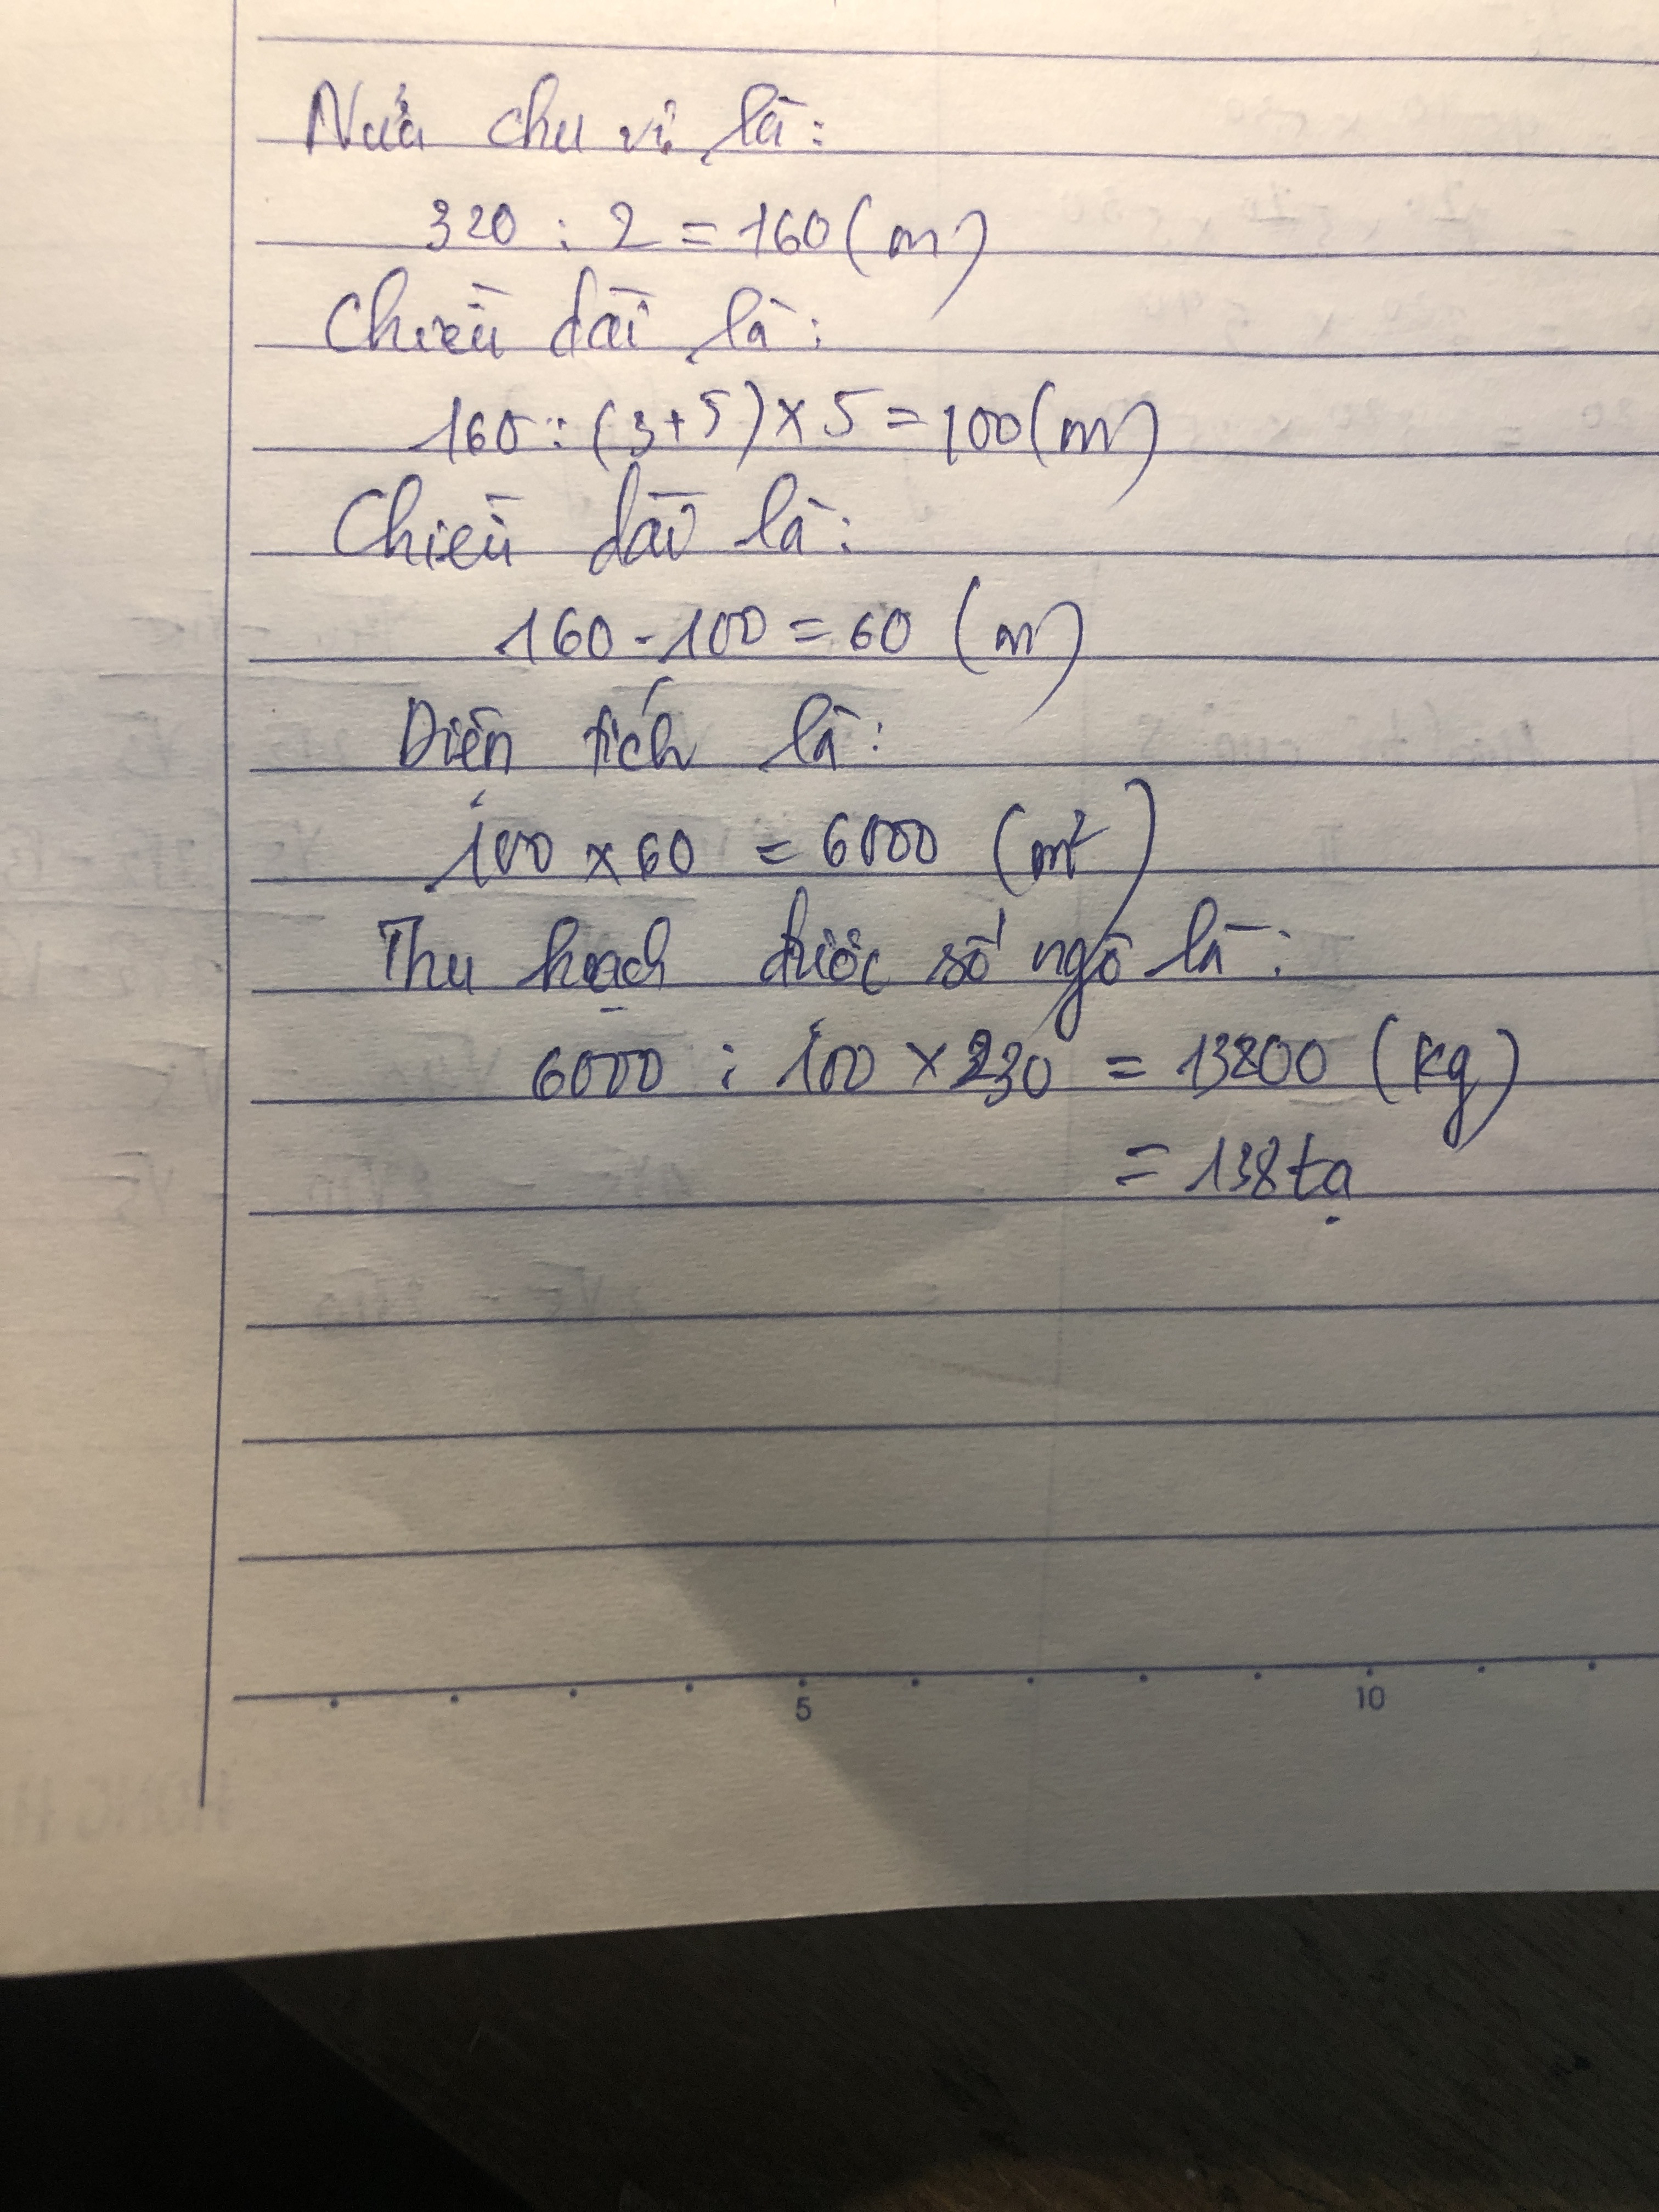 Nửa chu vi là:
320 : 2 = 160 (m)
Chiều dài là:
160 : (3+5) x 5 = 100 (m)
Chiều dài là:
160 - 100 = 60 (m)
Diện tích là:
100 x 60 = 6000 (m²)
Thu hoạch được số ngô là:
6000 : 100 x 230 = 13800 (kg)
= 138 tạ
5 10